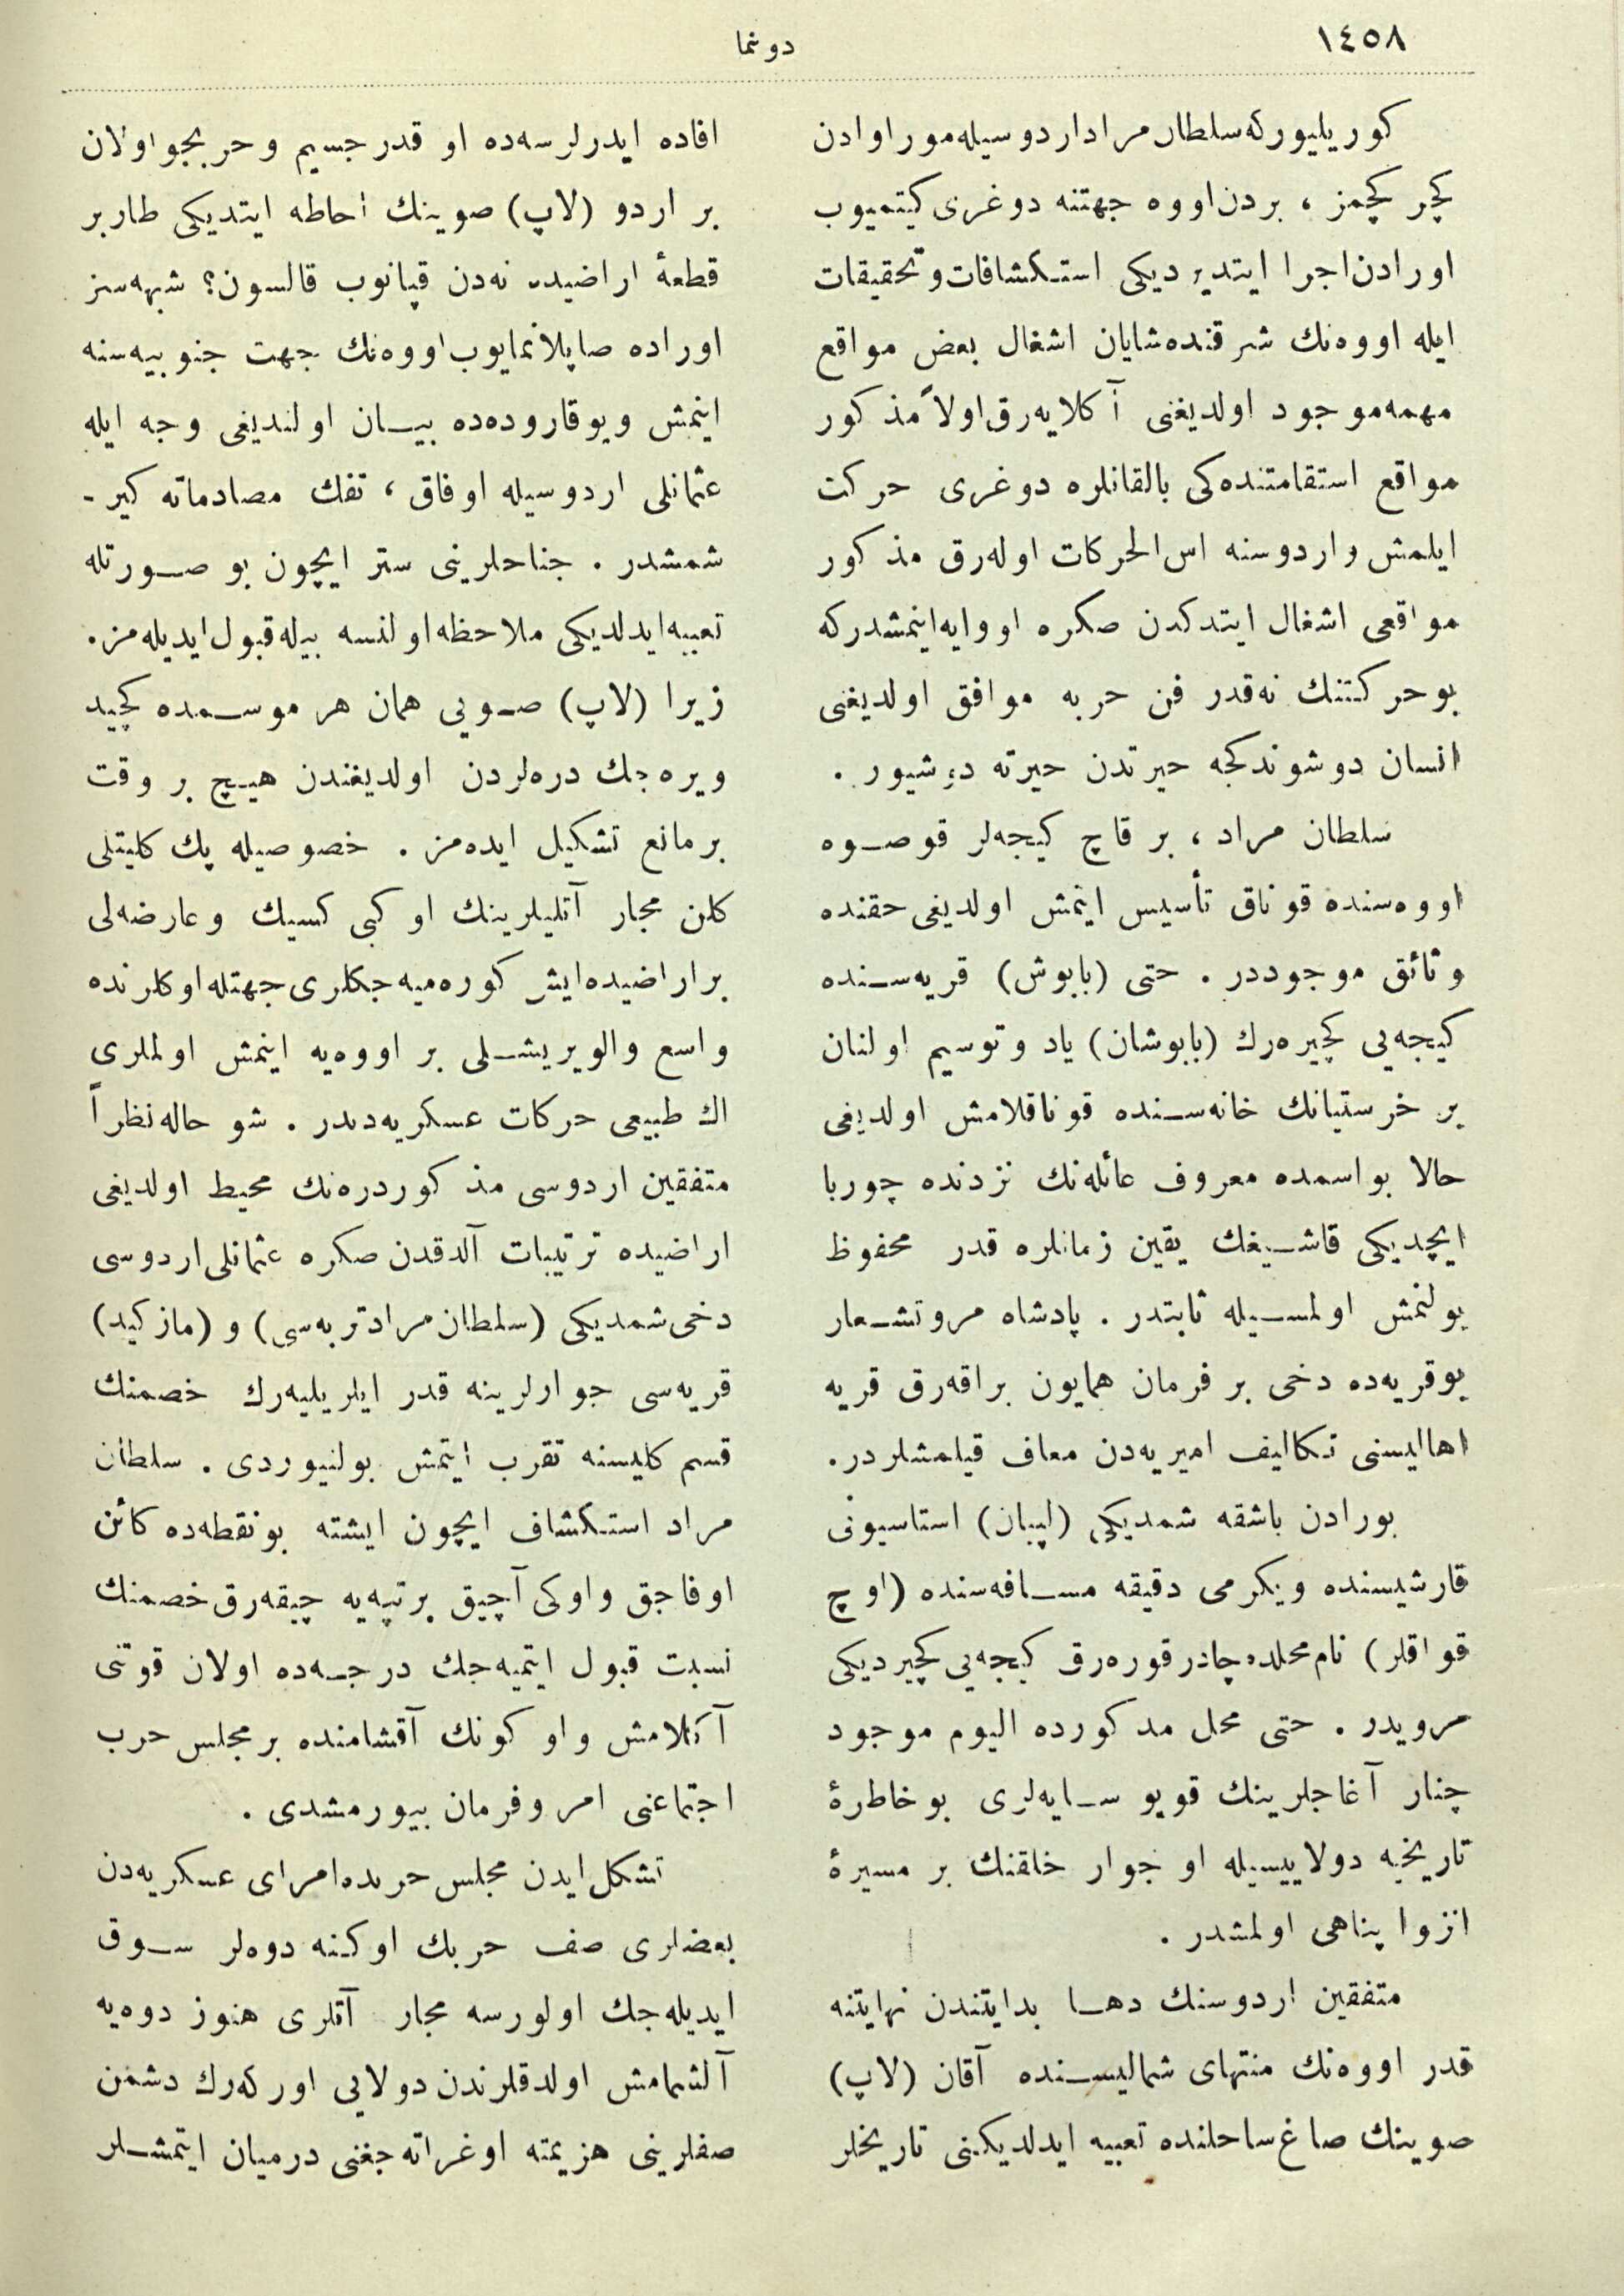 ١٤٥٨
دونما
كوريليوركه سلطان مراد اردوسيله موراوادن
كچر كچمز ، بردن اووه جهتنه دوغرى كيتميوب
اورادن اجرا ايتديرديكى استكشافات و تحقيقات
ايله اووه‌نك شرقنده شايان اشغال بعض مواقع
مهمه موجود اولديغنى آكلايه‌رق اولاً مذكور
مواقع استقامتنده‌كى بالقانلره دوغرى حركت
ايلمش و اردوسنه اس الحركات اوله‌رق مذكور
مواقعى اشغال ايتدكدن صكره اووايه اينمشدركه
بو حركتنك نه‌قدر فن حربه موافق اولديغنى
انسان دوشوندكجه حيرتدن حيرته دوشيور .
سلطان مراد ، بر قاچ كيجه‌لر قوصوه
اووه‌سنده قوناق تأسيس ايتمش اولديغى حقنده
وثائق موجوددر . حتى (بابوش) قريه‌سنده
كيجه‌يى كچيره‌رك (بابوشان) ياد و توسيم اولنان
بر خرستيانك خانه‌سنده قوناقلامش اولديغى
حالا بو اسمده معروف عائله‌نك نزدنده چوربا
ايچديكى قاشيغك يقين زمانلره قدر محفوظ
بولنمش اولمسيله ثابتدر . پادشاه مروتشعار
بو قريه‌ده دخى بر فرمان همايون براقه‌رق قريه
اهاليسنى تكاليف اميريه‌دن معاف قيلمشلردر.
بورادن باشقه شمديكى (ليپان) استاسيونى
قارشيسنده و يكرمى دقيقه مسافه‌سنده (اوچ
قواقلر) نام محلده چادر قوره‌رق كيجه‌يى كچيرديكى
مرويدر . حتى محل مذكورده اليوم موجود
چنار آغاجلرينك قويو سايه‌لرى بو خاطرۀ
تاريخيه دولاييسيله او جوار خلقنك بر مسيرۀ
انزوا پناهى اولمشدر .
متفقين اردوسنك دها بدايتندن نهايتنه
قدر اووه‌نك منتهاى شماليسنده آقان (لاپ)
صوينك صاغ ساحلنده تعبيه ايدلديكنى تاريخلر
افاده ايدرلرسه‌ده او قدر جسيم و حربجو اولان
بر اردو (لاپ) صوينك احاطه ايتديكى طار بر
قطعۀ اراضيده نه‌دن قپانوب قالسون؟ شبهه‌سز
اوراده صاپلانمايوب اووه‌نك جهت جنوبيه‌سنه
اينمش و يوقاروده‌ده بيان اولنديغى وجه ايله
عثمانلى اردوسيله اوفاق ، تفك مصادماته كير-
شمشدر . جناحلرينى ستر ايچون بو صورتله
تعبيه ايدلديكى ملاحظه اولنسه بيله قبول ايديله‌مز.
زيرا (لاپ) صويى همان هر موسمده كچيد
ويره‌جك دره‌لردن اولديغندن هيچ بر وقت
بر مانع تشكيل ايده‌مز . خصوصيله پك كليتلى
كلن مجار آتليلرينك او كبى كسيك و عارضه‌لى
بر اراضيده ايش كوره‌ميه جكلرى جهتله اوكلرنده
واسع و الويريشلى بر اووه‌يه اينمش اولملرى
اك طبيعى حركات عسكريه‌دندر . شو حاله نظراً
متفقين اردوسى مذكور دره‌نك محيط اولديغى
اراضيده ترتيبات آلدقدن صكره عثمانلى اردوسى
دخى شمديكى (سلطان مراد تربه‌سى) و (مازكيد)
قريه‌سى جوارلرينه قدر ايلريليه‌رك خصمنك
قسم كليسنه تقرب ايتمش بولنيوردى . سلطان
مراد استكشاف ايچون ايشته بو نقطه‌ده كائن
اوفاجق و اوكى آچيق بر تپه‌يه چيقه‌رق خصمنك
نسبت قبول ايتميه‌جك درجه‌ده اولان قوتنى
آكلامش و او كونك آقشامنده بر مجلس حرب
اجتماعنى امر و فرمان بيورمشدى .
تشكل ايدن مجلس حربده امراى عسكريه‌دن
بعضلرى صف حربك اوكنه دوه‌لر سوق
ايديله‌جك اولورسه مجار آتلرى هنوز دوه‌يه
آلشمامش اولدقلرندن دولايى اوركه‌رك دشمن
صفلرينى هزيمته اوغراته‌جغنى درميان ايتمشلر